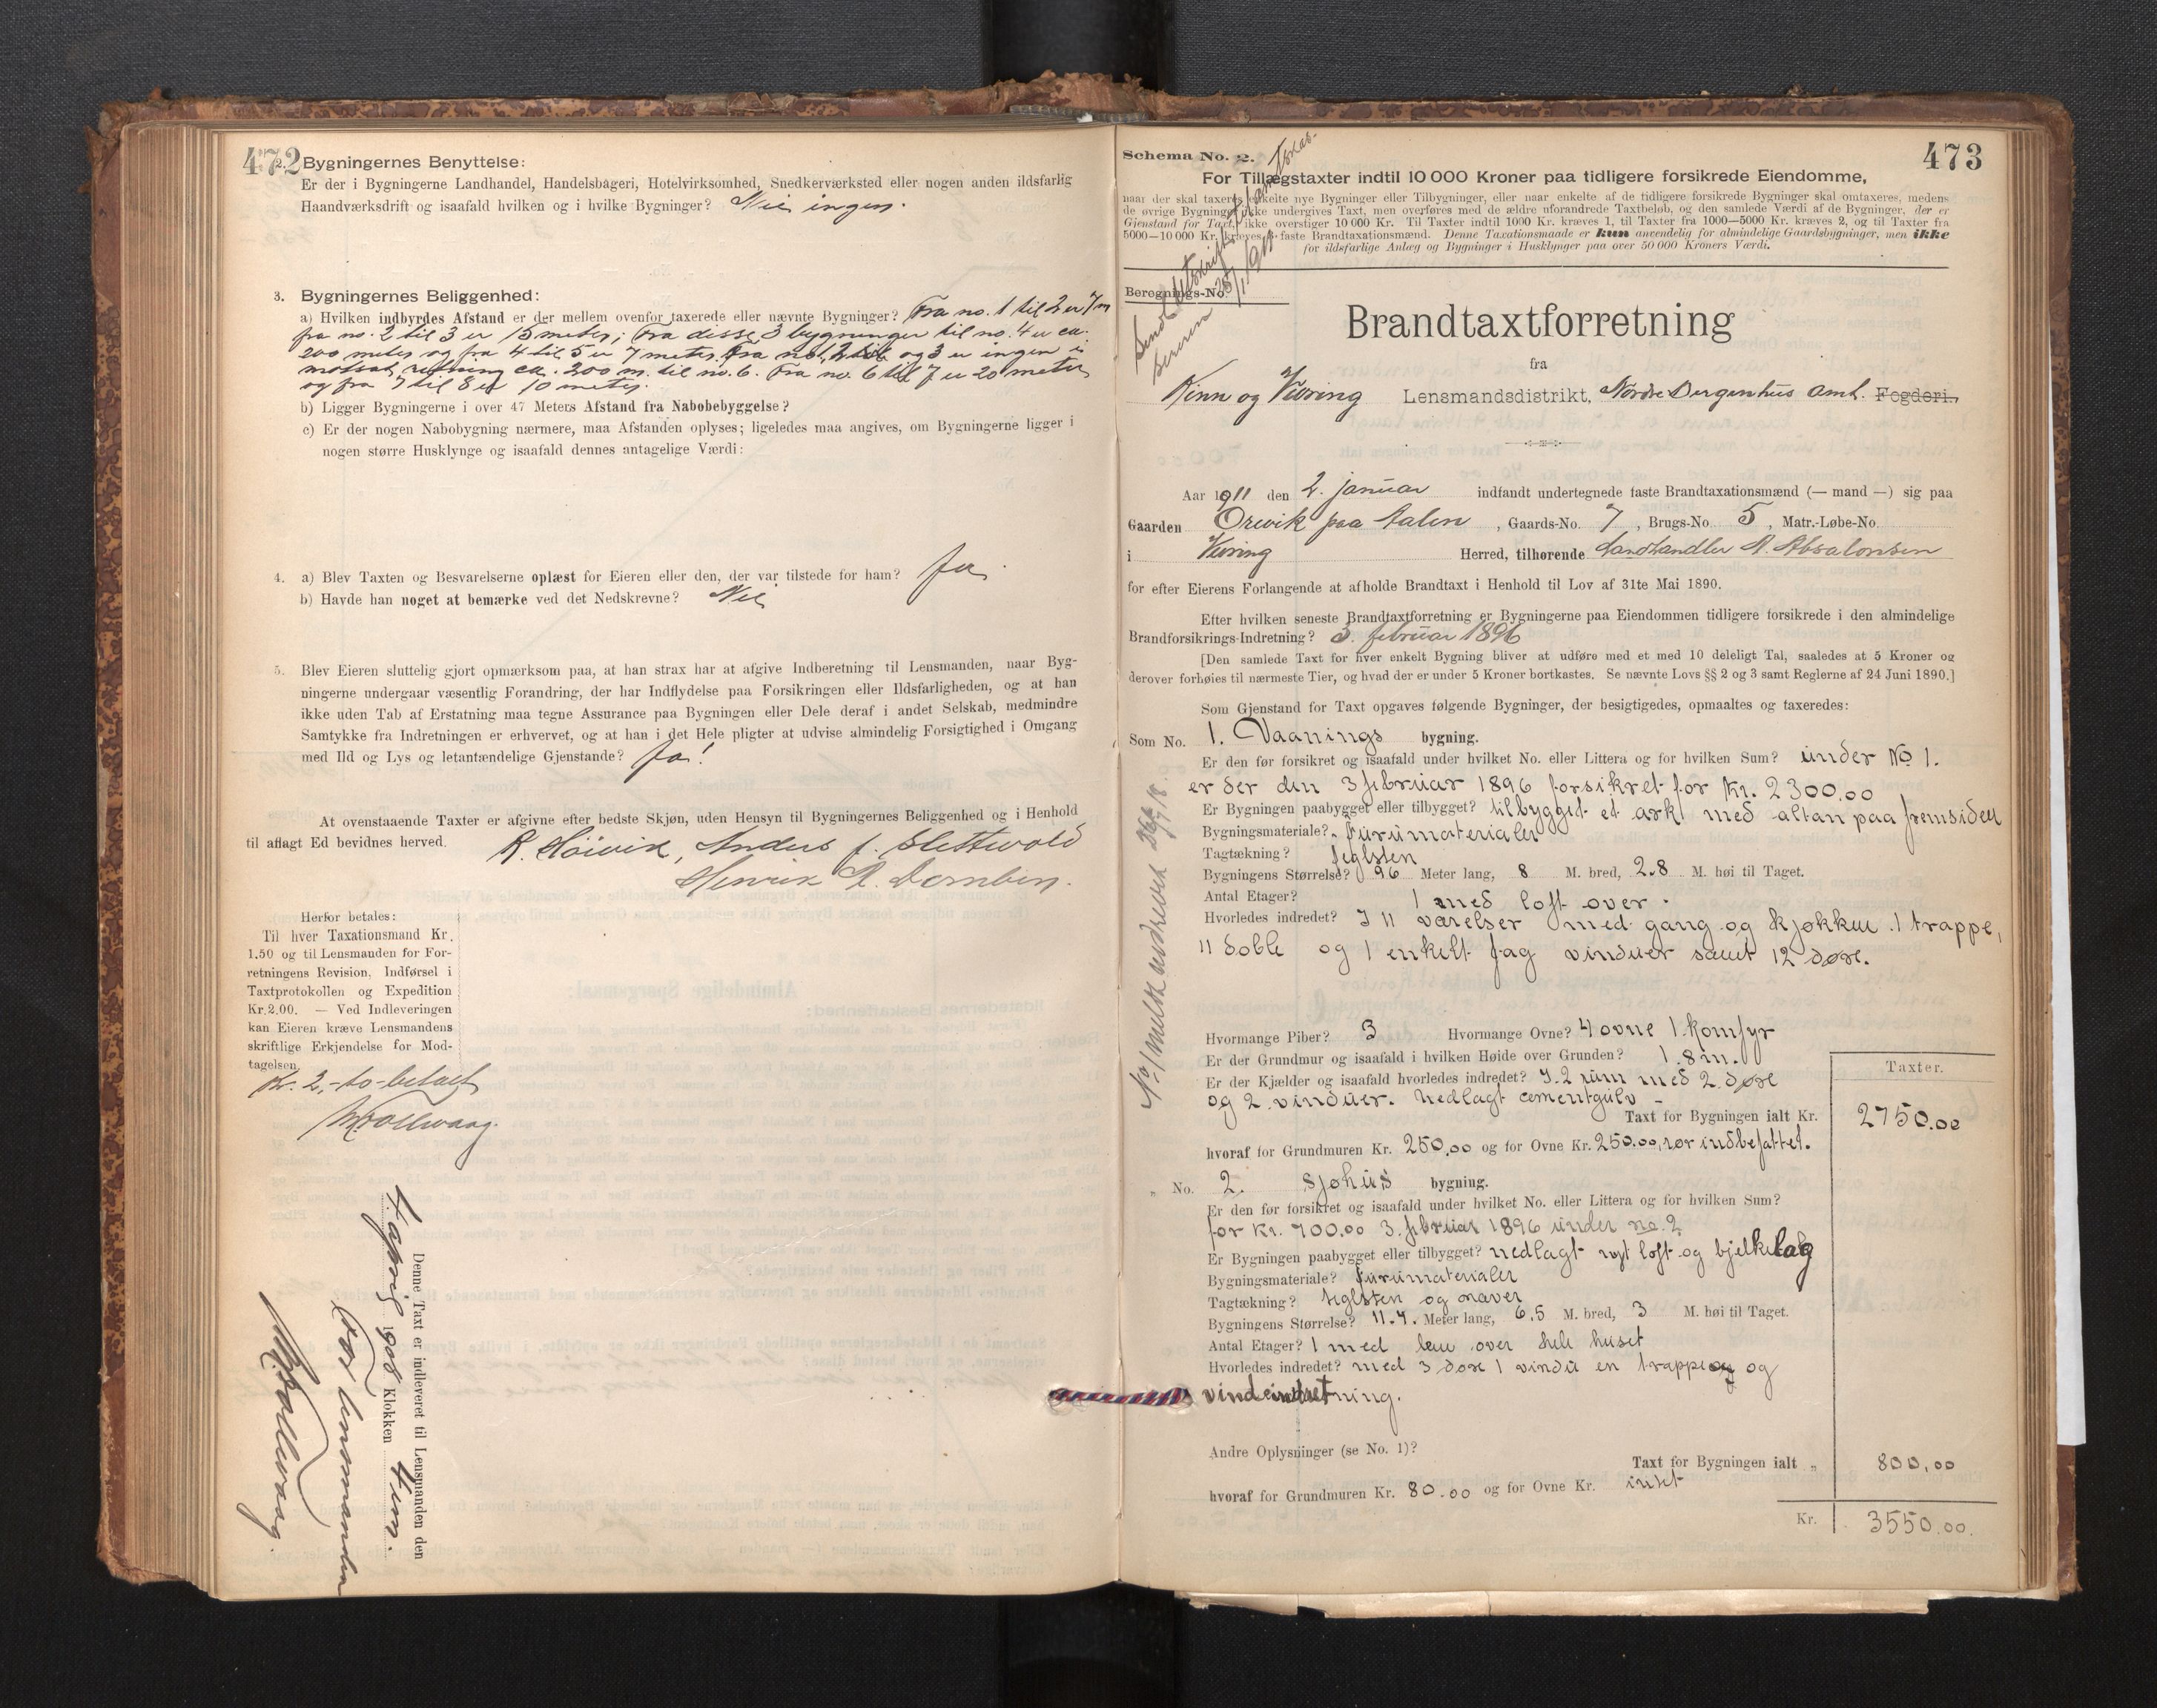 472
2. Bygningernes Benyttelse:
Er der i Bygningerne Landhandel, Handelsbageri, Hotelvirksomhed, Snedkerværksted eller nogen anden ildsfarlig
Haandværksdrift og isaafald hvilken og i hvilke Bygninger? Nei ingen.
3. Bygningernes Beliggenhed:
a) Hvilken indbyrdes Afstand er der mellem ovenfor taxerede eller nævnte Bygninger? Fra no. 1 til 2 er 7 m
fra no. 2 til 3 er 15 meter; Fra disse 3 bygninger til no. 4 er ca.
200 meter og fra 4 til 5 er 7 meter. Fra no 1, 2 og 3 er ingen i
motsat retning ca. 200 m. til no. 6. Fra no. 6 til 7 er 20 meter
og fra 7 til 8 er 10 meter.
b) Ligger Bygningerne i over 47 Meters Afstand fra Nabobebyggelse?
c) Er der nogen Nabobygning nærmere, maa Afstanden oplyses; ligeledes maa angives, om Bygningerne ligger i
nogen større Husklynge og isaafald dennes antagelige Værdi:
4. a) Blev Taxten og Besvarelserne oplæst for Eieren eller den, der var tilstede for ham? Ja.
b) Havde han noget at bemærke ved det Nedskrevne? Nei
5. Blev Eieren sluttelig gjort opmærksom paa, at han strax har at afgive Indberetning til Lensmanden, naar Byg-
ningerne undergaar væsentlig Forandring, der har Indflydelse paa Forsikringen eller Ildsfarligheden, og at han
ikke uden Tab af Erstatning maa tegne Assurance paa Bygningen eller Dele deraf i andet Selskab, medmindre
Samtykke fra Indretningen er erhvervet, og at han i det Hele pligter at udvise almindelig Forsigtighed i Omgang
med Ild og Lys og letantændelige Gjenstande? Ja!
At ovenstaaende Taxter er afgivne efter bedste Skjøn, uden Hensyn til Bygningernes Beliggenhed og i Henhold
til aflagt Ed bevidnes herved. R. Høivik, Anders J. Slettevold
Henrik A.
Herfor betales:
Til hver Taxationsmand Kr.
1.50 og til Lensmanden for For-
retningens Revision, Indførsel i
Taxtprotokollen og Expedition
Kr. 2.00. — Ved Indleveringen
kan Eieren kræve Lensmandens
skriftlige Erkjendelse for Mod-
tagelsen.
Kr. 2,- to - betalt
Denne Taxt er indleveret til Lensmanden den
4. april 1908 Klokken 4 em.
for lensmanden
Schema No. 2.
473
For Tillægstaxter indtil 10 000 Kroner paa tidligere forsikrede Eiendomme,
naar der skal taxeres enkelte nye Bygninger eller Tilbygninger, eller naar enkelte af de tidligere forsikrede Bygninger skal omtaxeres, medens
de øvrige Bygninger ikke undergives Taxt, men overføres med de ældre uforandrede Taxtbeløb, og den samlede Værdi af de Bygninger, der er
Gjenstand for Taxt, ikke overstiger 10 000 Kr. Til Taxter indtil 1000 Kr. kræves 1, til Taxter fra 1000—5000 Kr. kræves 2, og til Taxter fra
5000—10 000 Kr. kræves 3 faste Brandtaxationsmænd. Denne Taxationsmaade er kun anvendelig for almindelige Gaardsbygninger, men ikke
for ildsfarlige Anlæg og Bygninger i Husklynger paa over 50 000 Kroners Værdi.
Beregnings-No.
25/1 1911
Brandtaxtforretning
fra
Kinn og Vevring Lensmandsdistrikt, Nordre Bergenhus amt. Fogderi.
Aar 1911 den 2. januar indfandt undertegnede faste Brandtaxationsmænd (— mand —) sig paa
Gaarden Orevik paa Aalen, Gaards-No. 7, Brugs-No. 5, Matr.-Løbe-No.
i Vevring Herred, tilhørende Landhandler A. Absalonsen
for efter Eierens Forlangende at afholde Brandtaxt i Henhold til Lov af 31te Mai 1890.
Efter hvilken seneste Brandtaxtforretning er Bygningerne paa Eiendommen tidligere forsikrede i den almindelige
Brandforsikrings-Indretning? 3. februar 1896
[Den samlede Taxt for hver enkelt Bygning bliver at udføre med et med 10 deleligt Tal, saaledes at 5 Kroner og
derover forhøies til nærmeste Tier, og hvad der er under 5 Kroner bortkastes. Se nævnte Lovs §§ 2 og 3 samt Reglerne af 24 Juni 1890.]
Som Gjenstand for Taxt opgaves følgende Bygninger, der besigtigedes, opmaaltes og taxeredes:
Som No. 1. Vaanings bygning.
Er den før forsikret og isaafald under hvilket No. eller Littera og for hvilken Sum? under No 1.
er der den 3 februar 1896 forsikret for Kr. 2300.00
Er Bygningen paabygget eller tilbygget? tilbygget et ark med altan paa fremsiden
Bygningsmateriale? Furumaterialer
Tagtækning? teglsten
Bygningens Størrelse? 96 Meter lang, 8 M. bred, 2.8 M. høi til Taget.
Antal Etager? 1 med loft over.
Hvorledes indredet? I 11 værelser med gang og kjøkken. 1 trappe,
11 doble og 1 enkelt fag vinduer samt 12 døre.
Hvormange Piber? 3 Hvormange Ovne? 4 ovne 1 komfyr
Er der Grundmur og isaafald i hvilken Høide over Grunden? 1.8 m.
Er der Kjælder og isaafald hvorledes indredet? I 2 rum med 2 døre
og 2 vinduer. Nedlagt cementgulv -
Taxter.
Taxt for Bygningen ialt Kr. 2750.00
hvoraf for Grundmuren Kr. 250.00 og for Ovne Kr. 250.00, rør indbefattet.
„ No. 2. Sjøhus bygning.
Er den før forsikret og isaafald under hvilket No. eller Littera og for hvilken Sum?
for Kr. 700.00 3. februar 1896 under no. 2
Er Bygningen paabygget eller tilbygget? nedlagt nyt loft og bjelkelag
Bygningsmateriale? Furumaterialer
Tagtækning? teglsten og næver
Bygningens Størrelse? 11.4. Meter lang, 6.5 M. bred, 3 M. høi til Taget.
Antal Etager? 1 med lem over hele huset
Hvorledes indredet? med 3 døre 1 vindu en trappe og
vindeindretning.
Andre Oplysninger (se No. 1)?
Taxt for Bygningen ialt „ 800,00
hvoraf for Grundmuren Kr. 80.00 og for Ovne Kr. intet
Kr. 3550.00.